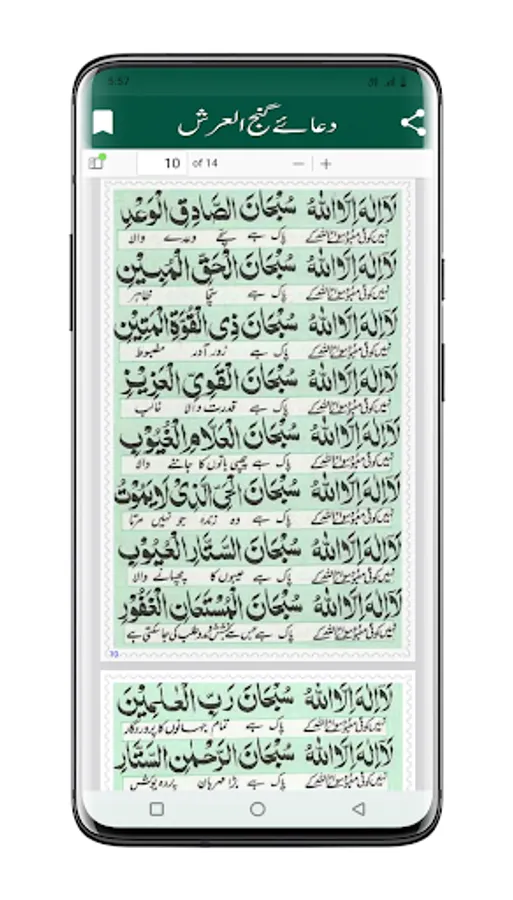 5:57
دعائے گنج العرش
10 of 14 − +
لَا اِلٰهَ اِلَّا اللهُ سُبْحَانَ الصَّادِقِ الْوَعْدِ
نہیں کوئی معبود سوائے اللہ کے پاک ہے سچے وعدے والا
لَا اِلٰهَ اِلَّا اللهُ سُبْحَانَ الْحَقِّ الْمُبِيْنِ
نہیں کوئی معبود سوائے اللہ کے پاک ہے سچا ظاہر
لَا اِلٰهَ اِلَّا اللهُ سُبْحَانَ ذِی الْقُوَّةِ الْمَتِيْنِ
نہیں کوئی معبود سوائے اللہ کے پاک ہے زور آور مضبوط
لَا اِلٰهَ اِلَّا اللهُ سُبْحَانَ الْقَوِیِّ الْعَزِيْزِ
نہیں کوئی معبود سوائے اللہ کے پاک ہے قدرت والا غالب
لَا اِلٰهَ اِلَّا اللهُ سُبْحَانَ الْعَلَّامِ الْغُيُوْبِ
نہیں کوئی معبود سوائے اللہ کے پاک ہے چھپی باتوں کا جاننے والا
لَا اِلٰهَ اِلَّا اللهُ سُبْحَانَ الْحَیِّ الَّذِیْ لَا يَمُوْتُ
نہیں کوئی معبود سوائے اللہ کے پاک ہے وہ زندہ جو نہیں مرتا
لَا اِلٰهَ اِلَّا اللهُ سُبْحَانَ السَّتَّارِ الْعُيُوْبِ
نہیں کوئی معبود سوائے اللہ کے پاک ہے عیبوں کا چھپانے والا
لَا اِلٰهَ اِلَّا اللهُ سُبْحَانَ الْمُسْتَعَانِ الْغَفُوْرِ
نہیں کوئی معبود سوائے اللہ کے پاک ہے جس سے بخشش و مدد طلب کی جاسکتی ہے
10
لَا اِلٰهَ اِلَّا اللهُ سُبْحَانَ رَبِّ الْعٰلَمِيْنَ
نہیں کوئی معبود سوائے اللہ کے پاک ہے تمام جہانوں کا پروردگار
لَا اِلٰهَ اِلَّا اللهُ سُبْحَانَ الرَّحْمٰنِ السَّتَّارِ
نہیں کوئی معبود سوائے اللہ کے پاک ہے بڑا مہربان پردہ پوش